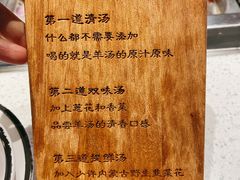 第一道清汤
什么都不需要添加
喝的就是羊汤的原汁原味
第二道双味汤
加上葱花和香菜
品尝羊汤的清香口感
第三道提鲜汤
加入少许内蒙古野生韭菜花